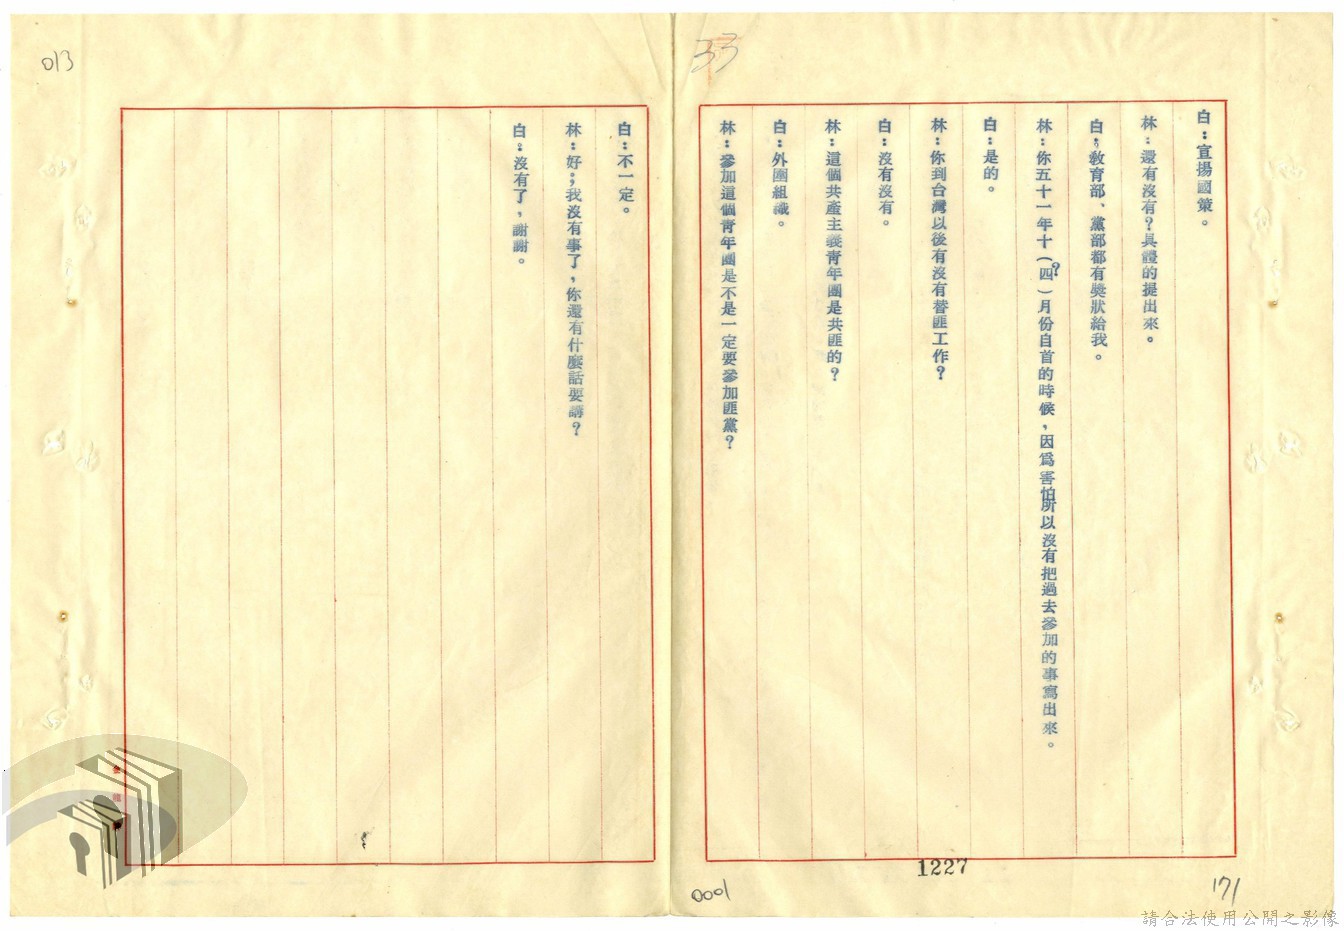 013
33
白：宣揚國策。
林：還有沒有？具體的提出來。
白：教育部、黨部都有獎狀給我。
林：你五十一年十（四？）月份自首的時候，因為害怕所以沒有把過去參加的事寫出來。
白：是的。
林：你到台灣以後有沒有替匪工作？
白：沒有沒有。
林：這個共產主義青年團是共匪的？
白：外圍組織。
林：參加這個青年團是不是一定要參加匪黨？
白：不一定。
林：好，我沒有事了，你還有什麼話要講？
白：沒有了，謝謝。
1227
0001
171
請合法使用公開之影像